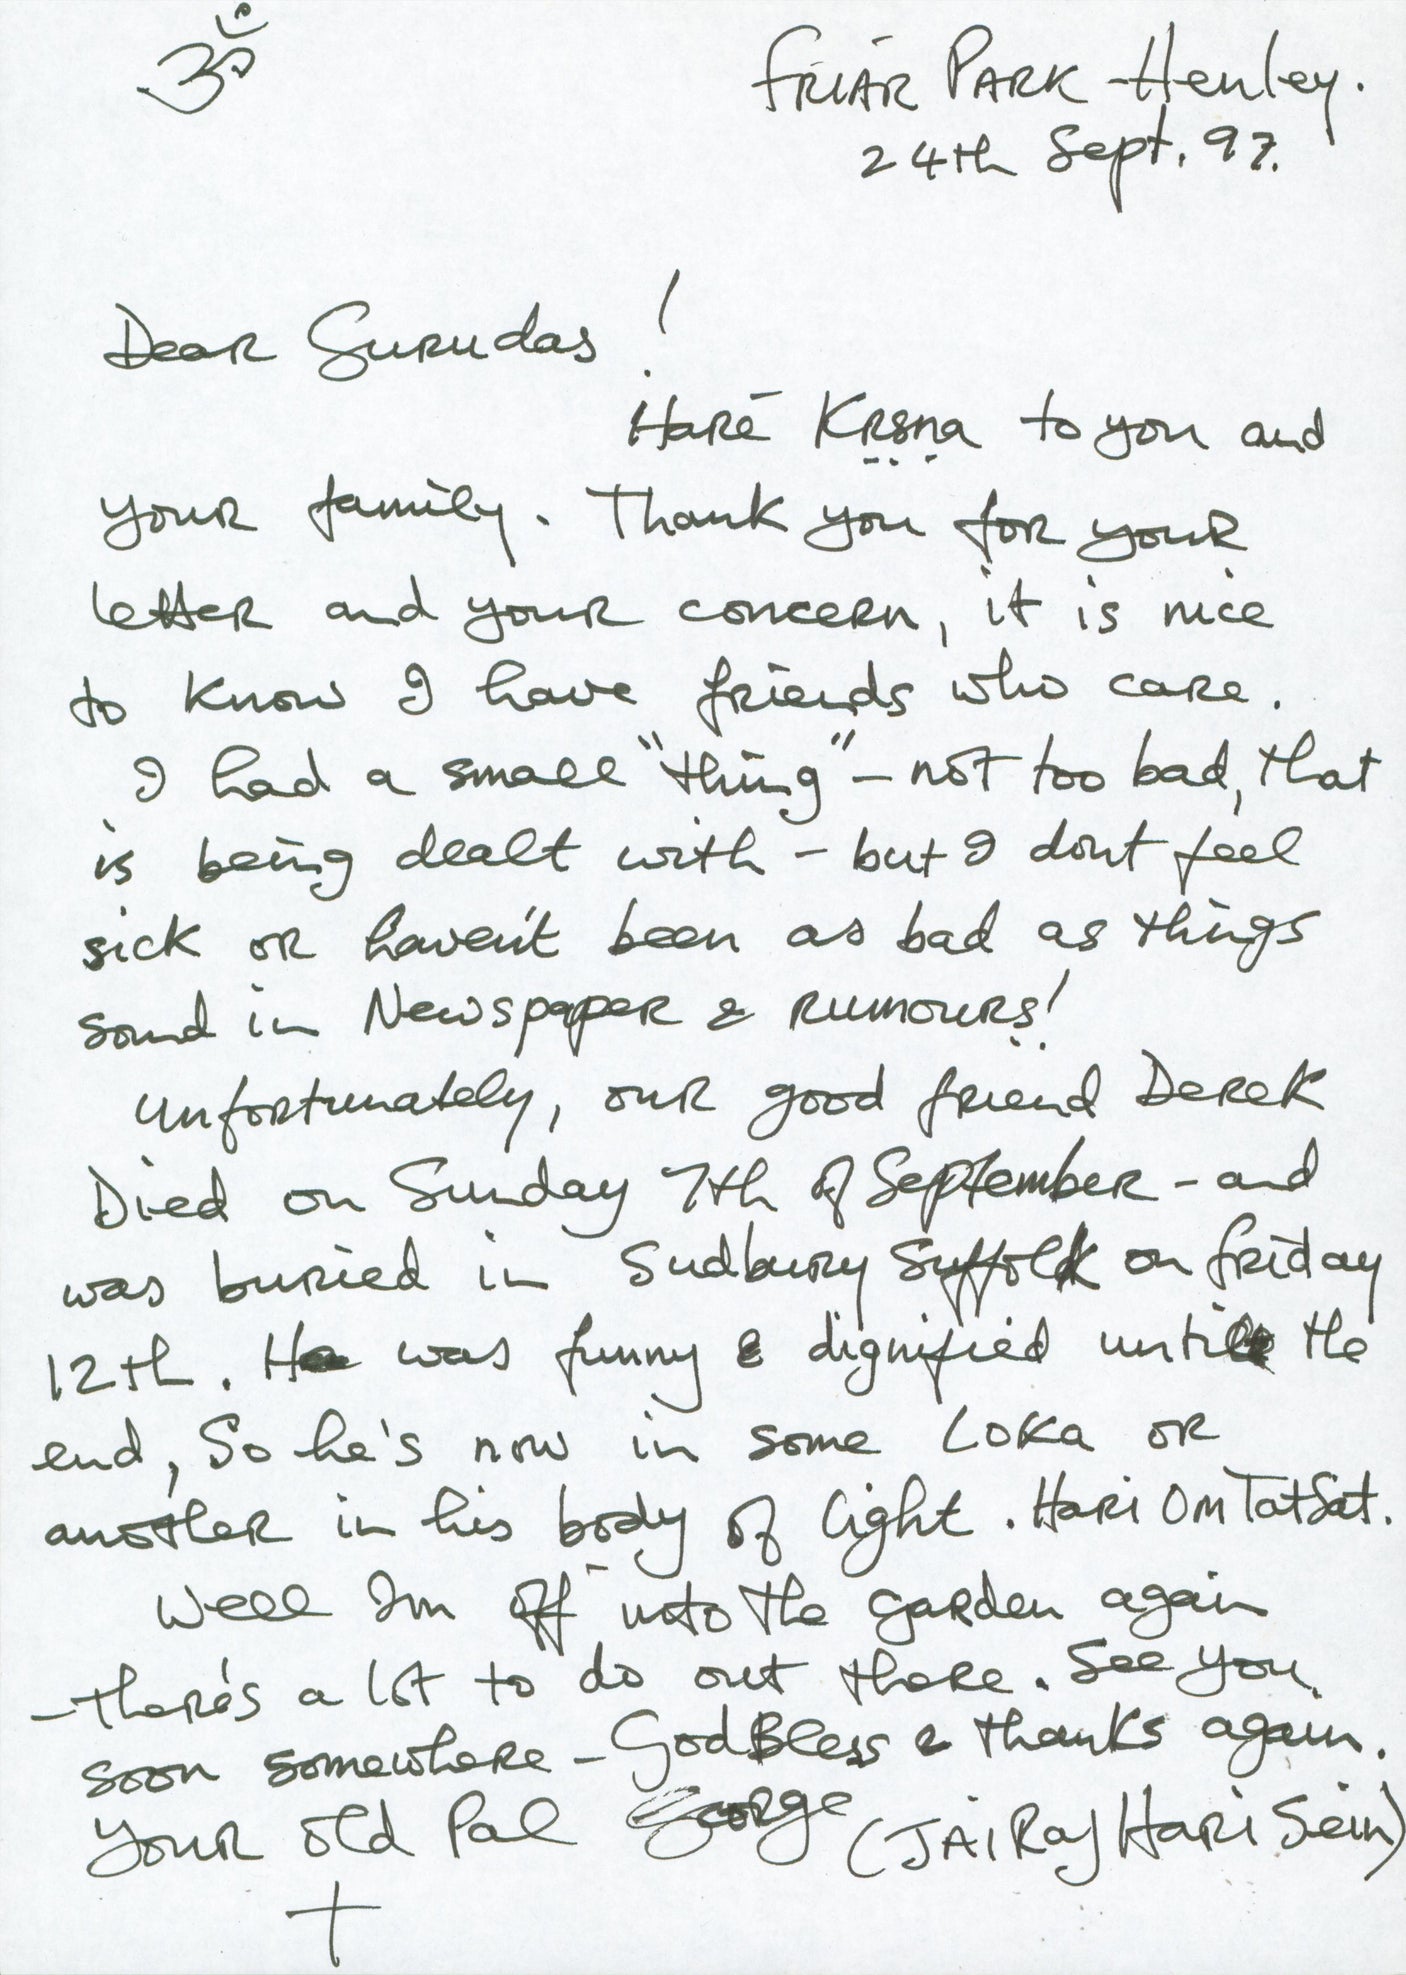 ॐ
FRIAR PARK - Henley.
24th Sept. 97.
Dear Gurudas!
Harē Kṛṣṇa to you and
your family. Thank you for your
letter and your concern, it is nice
to know I have friends who care.
I had a small "thing" - not too bad, that
is being dealt with - but I dont feel
sick or haven't been as bad as things
sound in Newspaper & rumours!
Unfortunately, our good friend Derek
Died on Sunday 7th of September - and
was buried in Sudbury Suffolk on friday
12th. He was funny & dignified until the
end, So he's now in some Loka or
another in his body of light. Hari Om Tat Sat.
Well Im off into the garden again
- there's a lot to do out there. See you
soon somewhere - God Bless & thanks again.
Your old Pal George (JAi Raj Hari Sein)